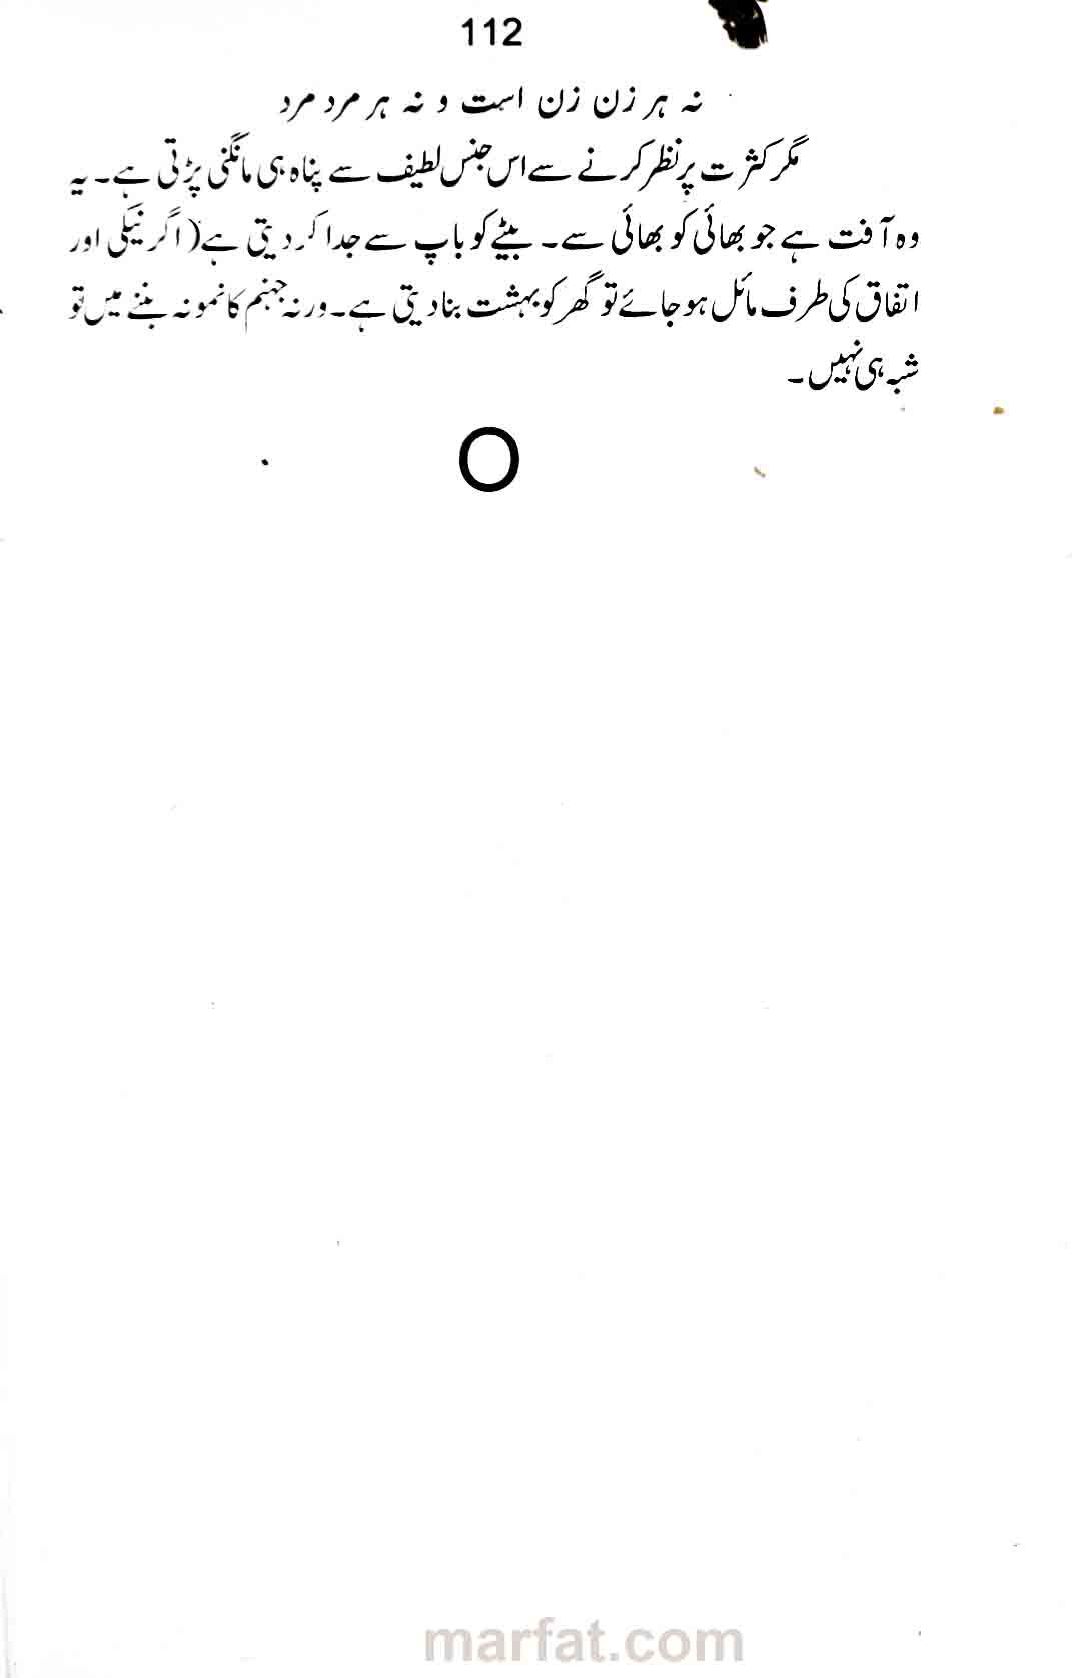 112
نہ ہر زن زن است و نہ ہر مرد مرد
مگر کثرت پر نظر کرنے سے اس جنس لطیف سے پناہ ہی مانگنی پڑتی ہے۔ یہ
وہ آفت ہے جو بھائی کو بھائی سے۔ بیٹے کو باپ سے جدا کر دیتی ہے( اگر نیکی اور
اتفاق کی طرف مائل ہو جائے تو گھر کو بہشت بنا دیتی ہے۔ ورنہ جہنم کا نمونہ بننے میں تو
شبہ ہی نہیں۔
marfat.com